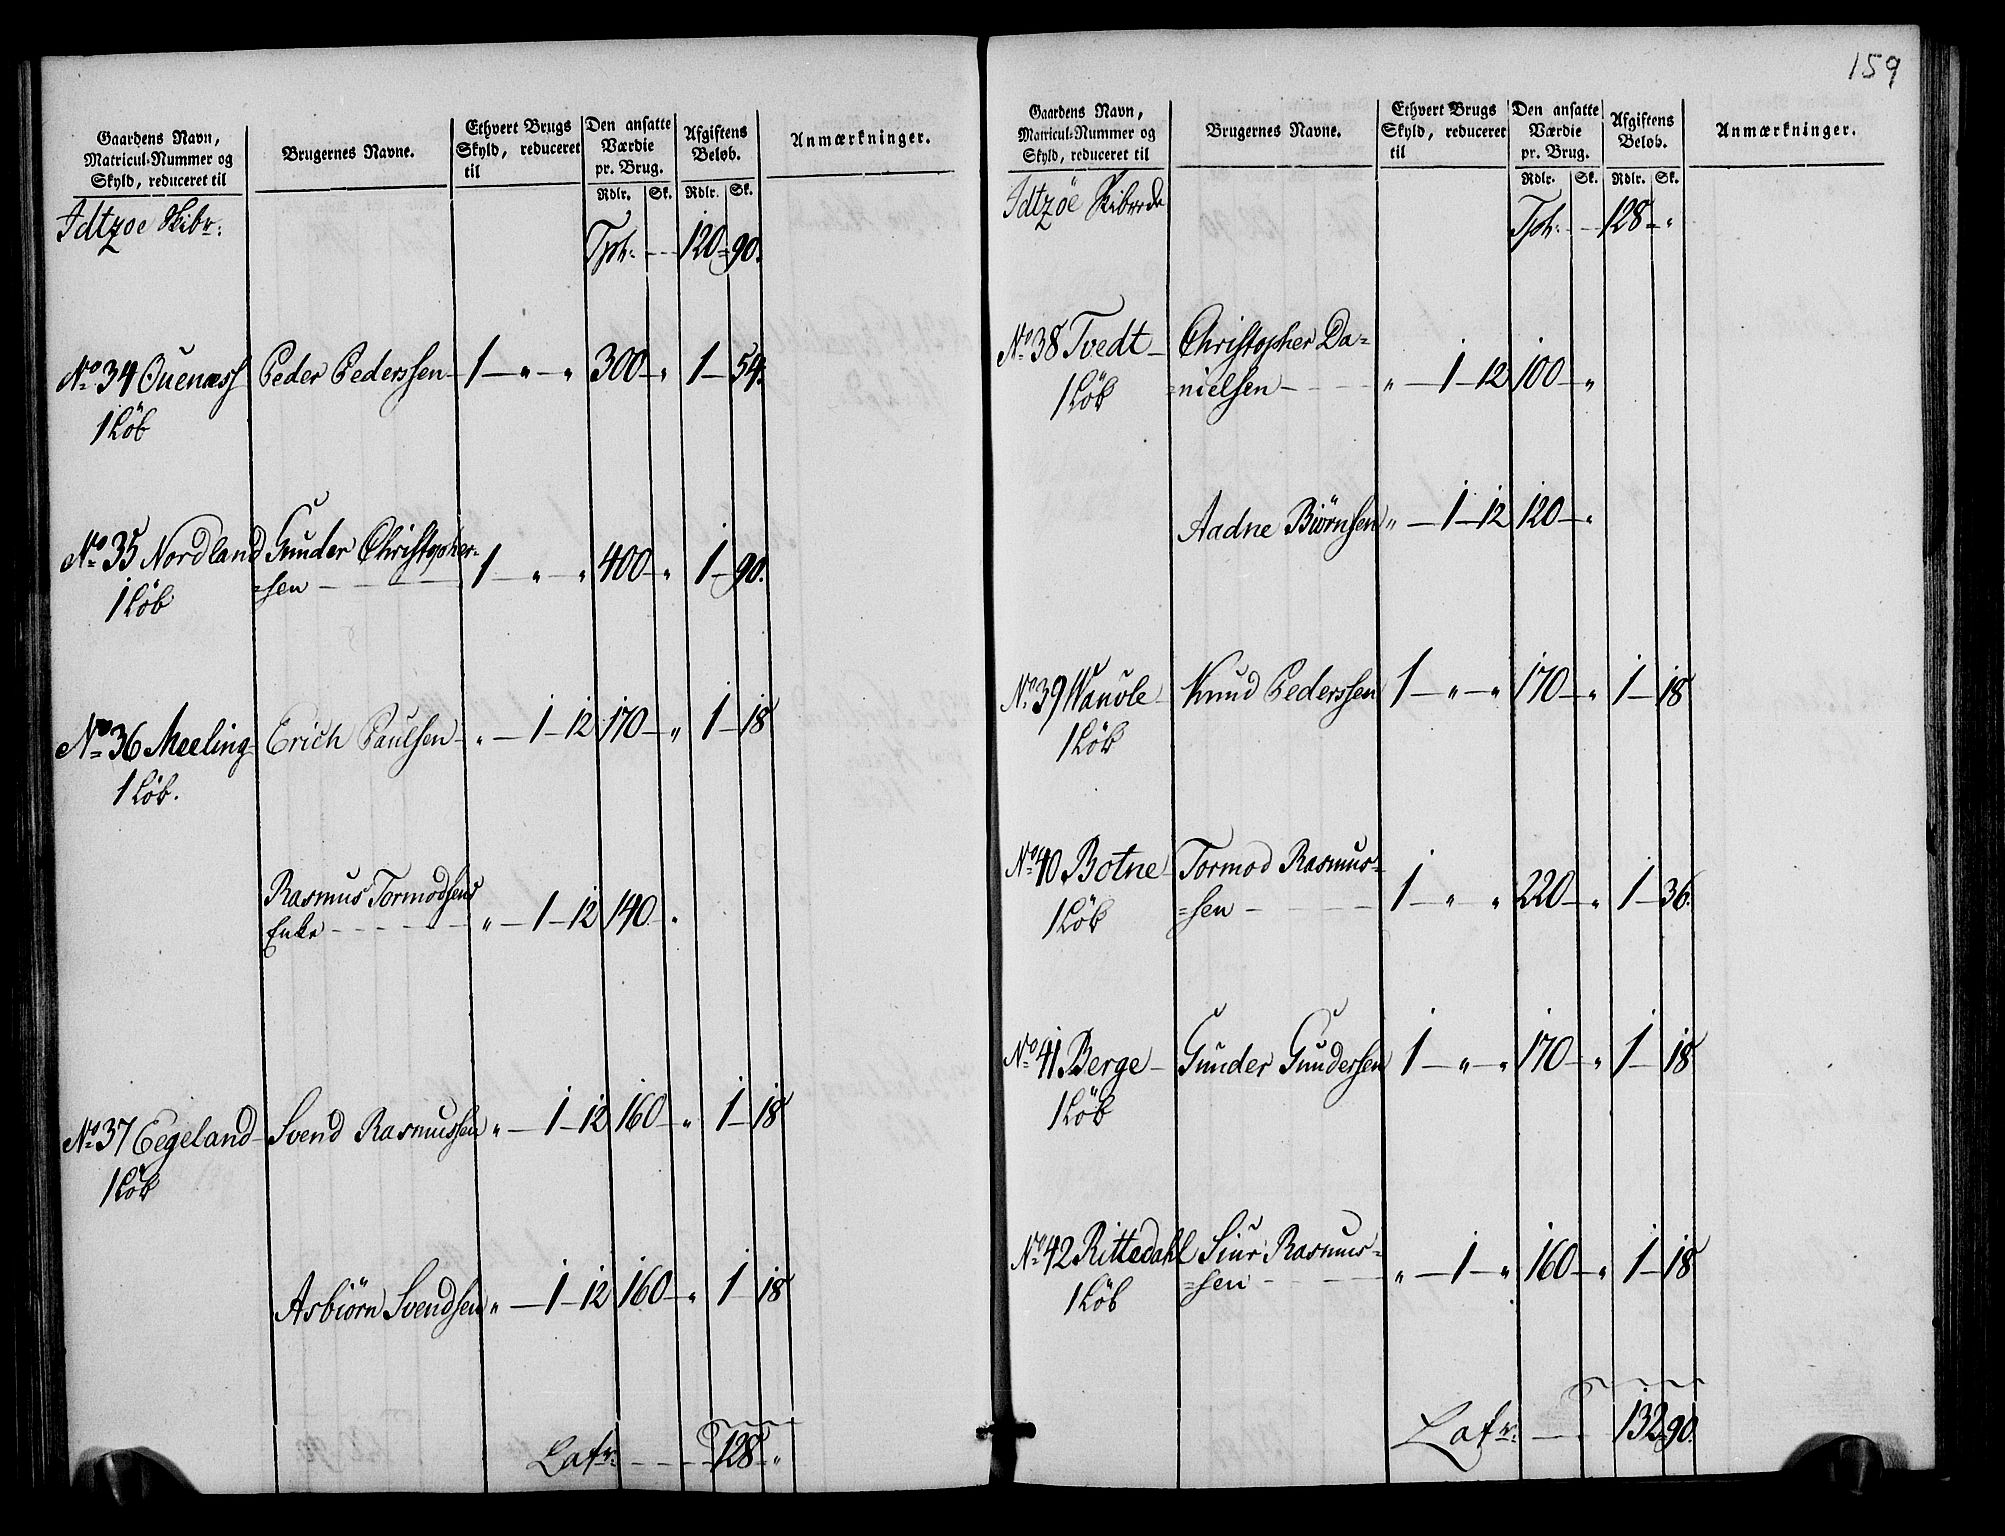 Gaardens Navn,
Matricul-Nummer og
Skyld, reduceret til
Brugernes Navne.
Ethvert Brugs
Skyld, reduceret
til
Den ansatte
Værdie
pr. Brug.
Rdlr. Sk.
Afgiftens
Beløb.
Rdlr. Sk.
Anmærkninger.
Idtzøe Skibr:
Tpt: — 120 = 90.
No 34 Ouenæss Peder Pederssen — 1 — „ — „ 300 — „ 1 — 54.
1 Löb
No 35 Nordland Gunder Christopher=
=sen — 1 — „ — „ 400 — „ 1 — 90.
1 Löb
No 36 Meeling Erich Paulsen — „ — 1 — 12 170 — „ 1 — 18
1 Löb.
Rasmus Tormodsens
Enke — „ — 1 — 12 140 „
No 37 Eegeland Svend Rasmussen „ — 1 — 12 160 — „ 1 — 18
1 Löb
Asbiørn Svendsen „ — 1 — 12 160 — „ 1 — 18
Latr: — 128 — „
159
Gaardens Navn,
Matricul-Nummer og
Skyld, reduceret til
Brugernes Navne.
Ethvert Brugs
Skyld, reduceret
til
Den ansatte
Værdie
pr. Brug.
Rdlr. Sk.
Afgiftens
Beløb.
Rdlr. Sk.
Anmærkninger.
Idtzøe Skibrede
Tpt: — 128 — „
No 38 Tvedt — Christopher Da=
=nielsen — „ — 1 — 12 100 — „
1 Löb
Aadne Biörnsen „ — 1 — 12 120 — „
No 39 Wauole Knud Pederssen 1 — „ — „ 170 — „ 1 — 18
1 Löb
No 40 Botne Tormod Rasmus=
=sen — 1 — „ „ 220 — „ 1 — 36.
1 Löb
No 41 Berge — Gunder Gundersen 1 — „ — „ 170 — „ 1 — 18
1 Löb
No 42 Rittedahl Siur Rasmus=
=sen — „ — 1 — „ 160 — „ 1 — 18
1 Löb
Latr: — 132 = 90.